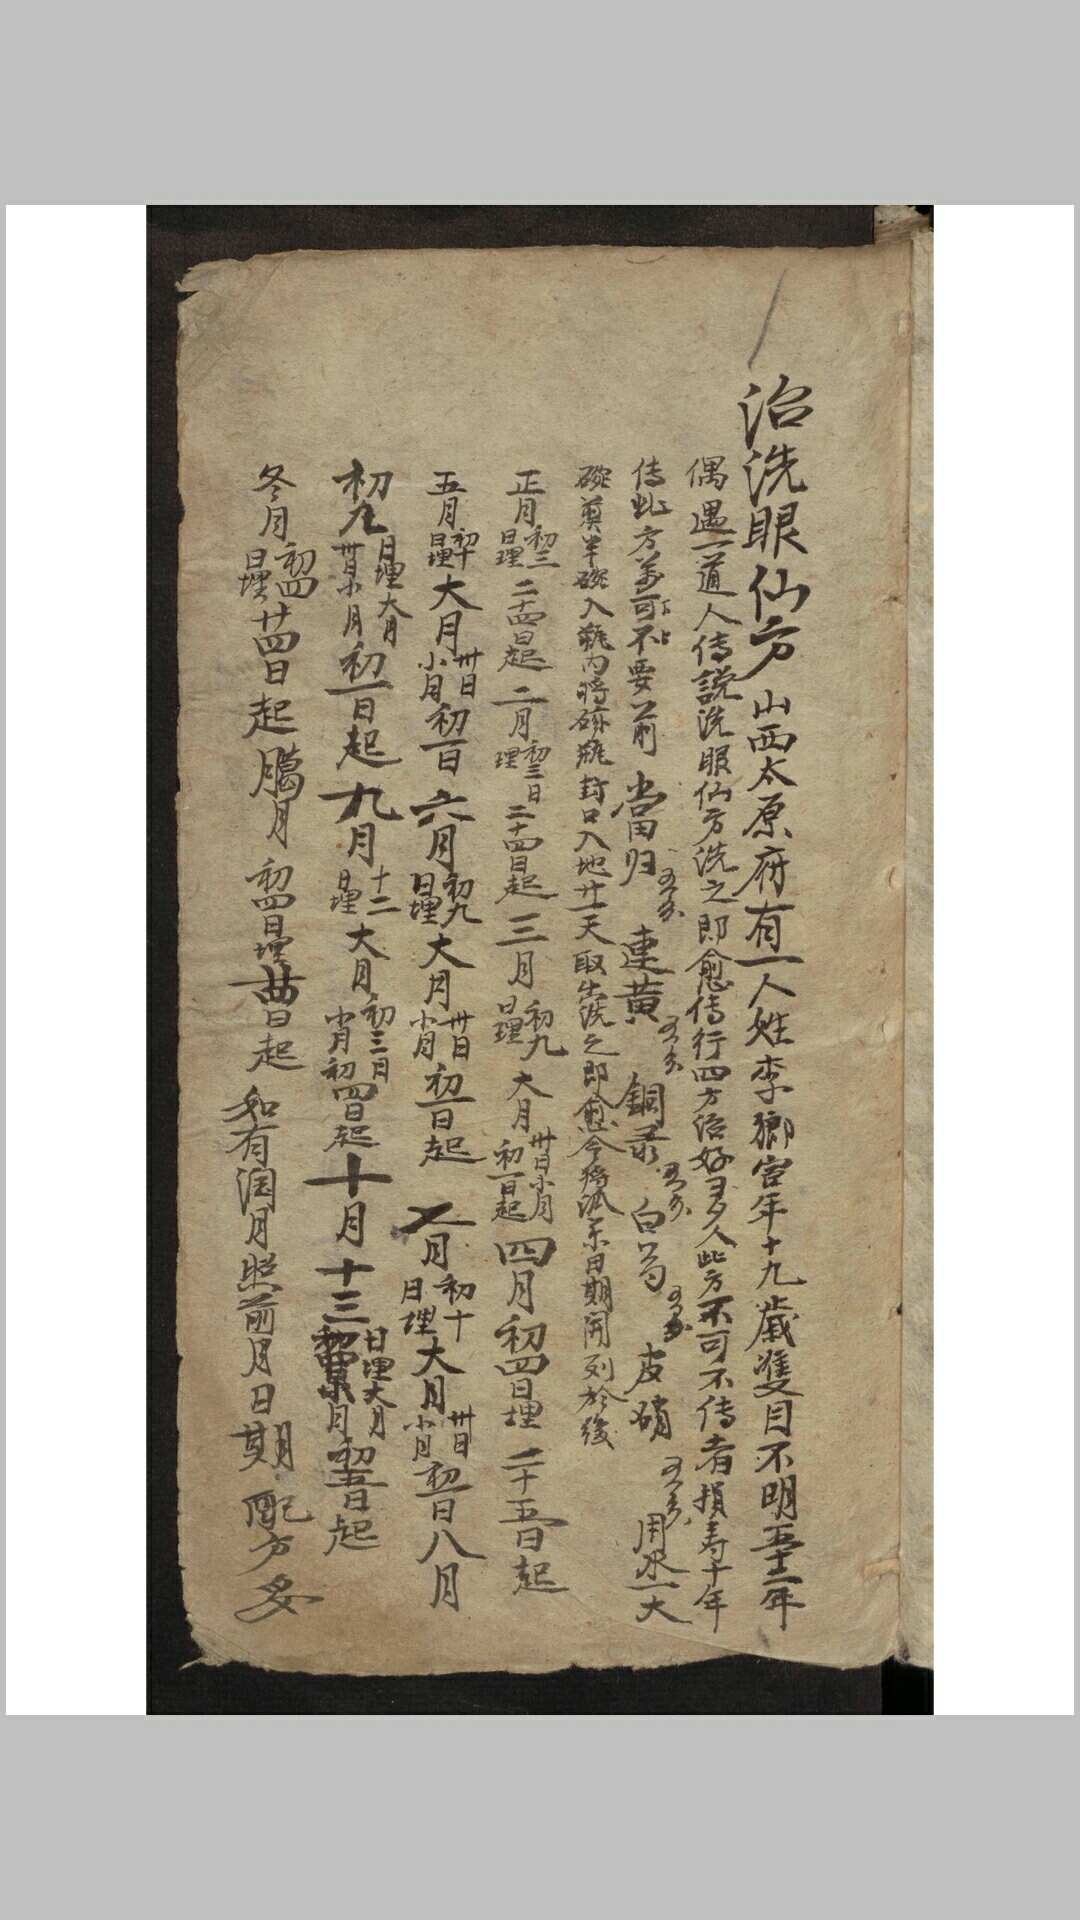 治洗眼仙方 山西太原府有一人姓李鄉宦年十九歲雙目不明五十二年
偶遇一道人傳説洗眼仙方洗之即愈傳行四方治好多人此方不可不傳者損寿十年
傳此方萬可不要前 當归 連黄 銅录 白芍 皮硝 用水一大
碗煎半碗入瓶内將瓶封口入地廿一天取出洗之即愈今將日期開列於後
正月初三日埋二十四日起二月初三日埋二十四日起三月初九日埋大月卅日小月初一日起四月初四日埋二十五日起
五月初十日埋大月卅日小月初一日六月初九日埋大月卅日小月初一日起七月初十日埋大月卅日小月初一日八月
初九日埋大月卅日小月初一日起九月十二日埋大月初三日小月初四日起十月十三日埋大月月初五日起
冬月初四日埋廿四日起臈月初四日埋起如有閏月照前月日期配方妥